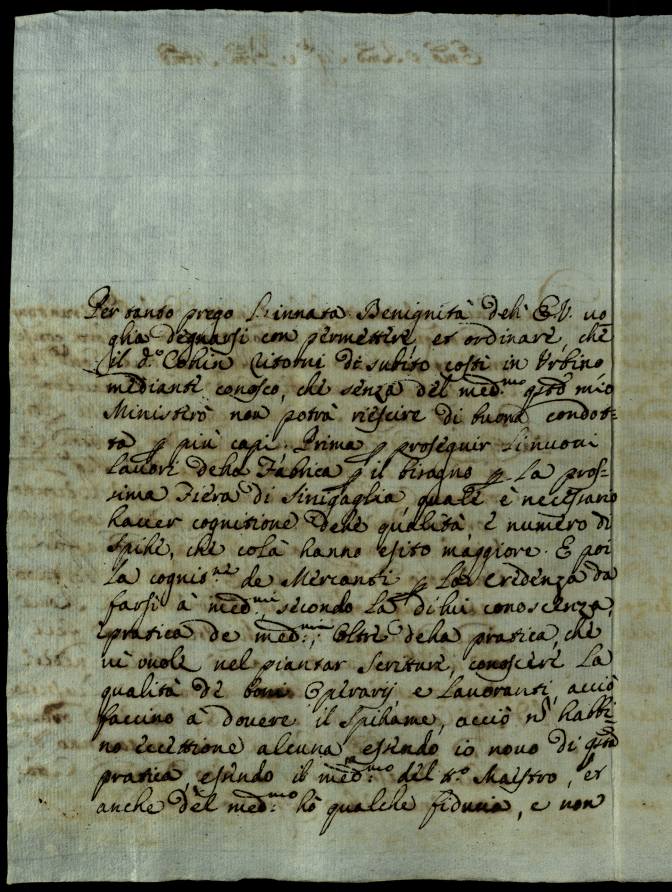 Per tanto prego l'innata Benignità dell' E.V. vo
glia degnarsi con permettere, et ordinare, che
il d.º Cohin ritorni di subito costì in Urbino
mediante conosco, che senza del med.mo questo mio
Ministero non potrà riescire di buona condot=
ta p più capi. Prima p proseguir li nuovi
Lavori della Fabrica p il bisogno p la pros=
sima Fiera di Sinigaglia quale è necessario
haver cognitione delle qualità, e numero di
Spille, che colà hanno esito maggiore. E poi
la cognis.ne de Mercanti p la credenza da
farsi à med.mi secondo la di lui conoscenza,
e pratica de med.mi; Oltre della pratica, che
vi vuole nel piantar scriture, conoscere la
qualità de boni Operarij e Lavoranti, acciò
faccino à dovere il Spillame, acciò n habbi
no eccettione alcuna essendo io novo di questa
pratica, essendo il med.mo del Maestro, et
anche del med.mo hò qualche fiducia, e non